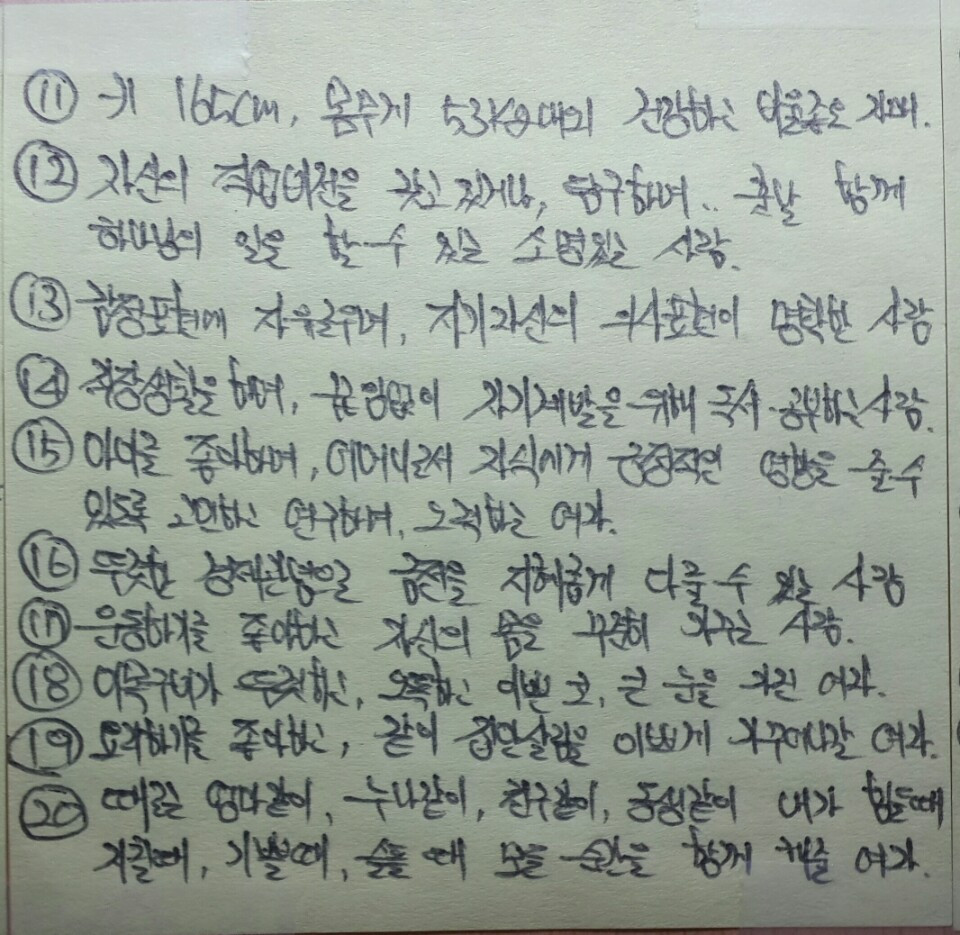 ⑪ 키 165cm, 몸무게 53kg대의 건강하고 비율좋은 자매.
⑫ 자신의 직업비전을 갖고 있거나, 탐구하며.. 훗날 함께
하나님의 일을 할 수 있는 소명있는 사람.
⑬ 감정표현에 자유로우며, 자기자신의 의사표현이 명확한 사람
⑭ 직장생활을 하며, 끊임없이 자기계발을 위해 독서·공부하는 사람.
⑮ 아이를 좋아하며, 어머니로서 자식에게 긍정적인 영향을 줄 수
있도록 고민하고 연구하며, 노력하는 여자.
⑯ 뚜렷한 경제관념으로 금전을 지혜롭게 다룰 수 있는 사람
⑰ 운동하기를 좋아하고 자신의 몸을 꾸준히 가꾸는 사람.
⑱ 이목구비가 뚜렷하고, 오똑하고 이쁜 코, 큰 눈을 가진 여자.
⑲ 요리하기를 좋아하고, 같이 집안살림을 이쁘게 가꾸어나갈 여자.
⑳ 때로는 엄마같이, 누나같이, 친구같이, 동생같이 내가 힘들때
지칠때, 기쁠때, 슬플 때 모든 순간을 함께 해줄 여자.